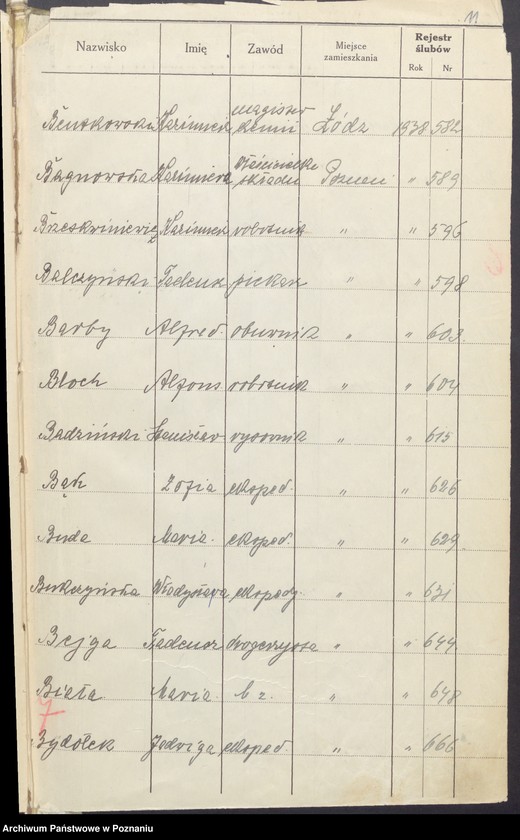 11
Nazwisko Imię Zawód Miejsce zamieszkania Rejestr ślubów Rok Nr
Bentkowski Kazimierz magister chemii Łódz 1938 582
Bagnowska Kazimiera właścicielka składu Poznań " 589
Brzeskwiniewicz Kazimierz robotnik " " 596
Balczyński Tadeusz piekarz " " 598
Barby Alfred obuwnik " " 603
Bloch Alfons robotnik " " 604
Badziński Stanisław rysownik " " 615
Bąk Zofia eksped. " " 626
Buda Maria eksped. " " 629
Bukczyńska Władysława eksped. " " 631
Bejga Tadeusz drogerzysta " " 644
Biała Maria b. z. " " 648
7
Bydołek Jadwiga eksped. " " 666
Archiwum Państwowe w Poznaniu